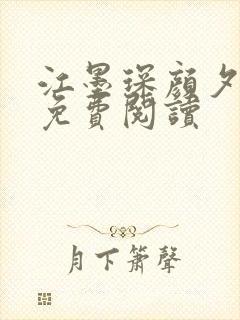 江墨琛顏夕
免費閱讀
月下簫聲